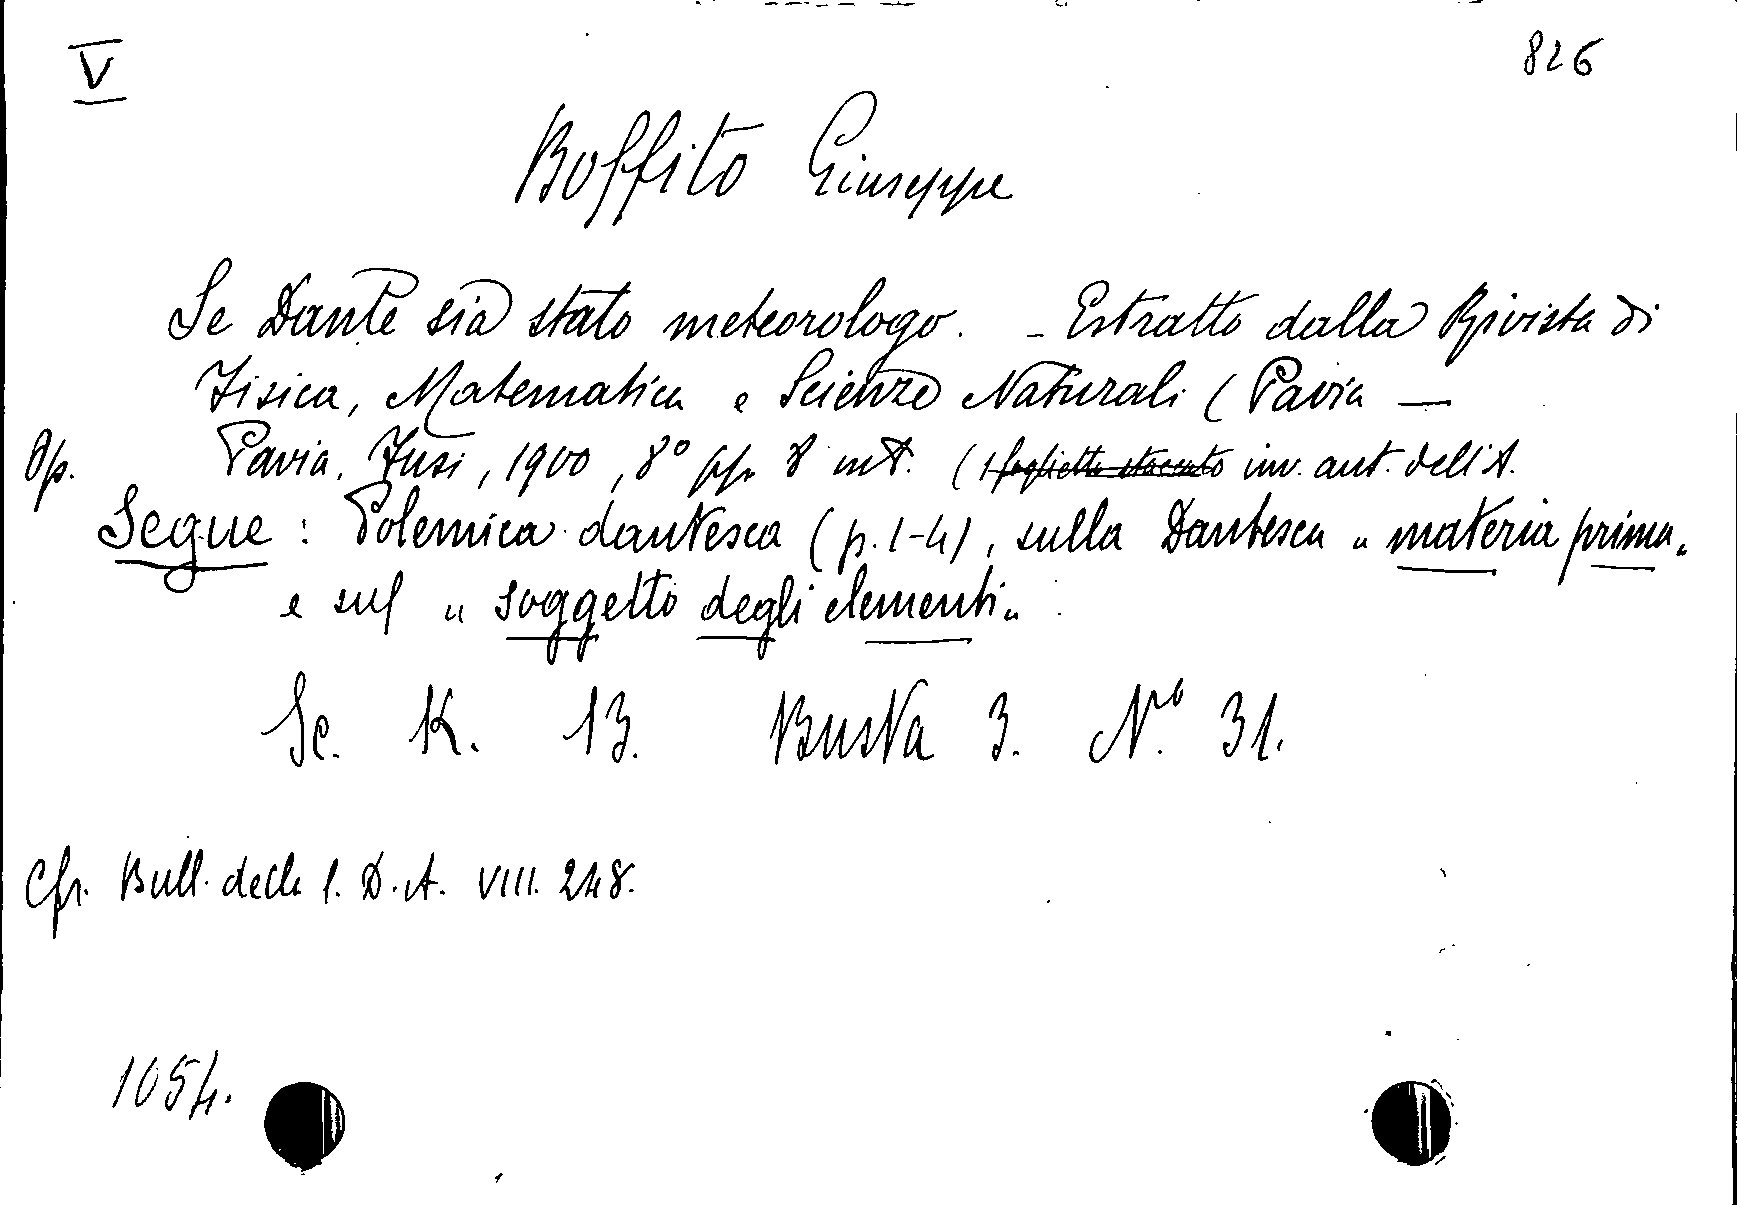 V
826
Boffito Giuseppe
Se Dante sia stato meteorologo. - Estratto dalla Rivista di
Fisica, Matematica e Scienze Naturali (Pavia —
Op. Pavia. Fusi, 1900, 8° pp. 8 int. (1 foglietto staccato inv. aut. dell'A.
Segue: Polemica dantesca (p. 1-4), sulla Dantesca "materia prima"
e sul "soggetto degli elementi"
Sc. K. 13. Busta 3. N.° 31.
Cfr. Bull. della S. D. A. VIII. 248.
1054.